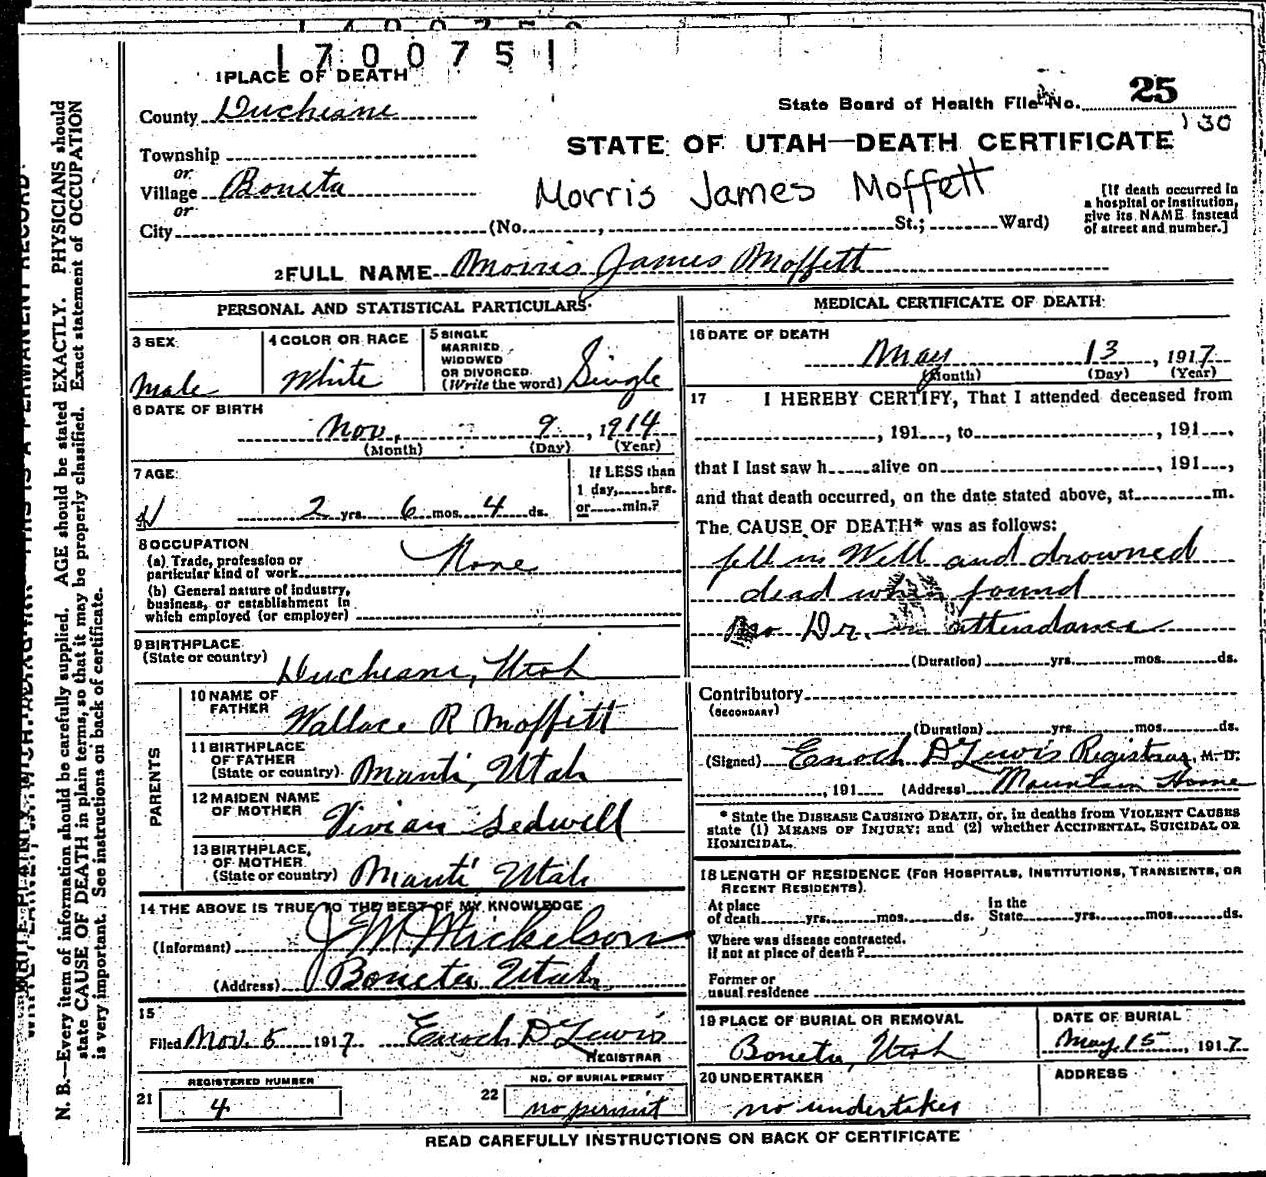 1700751
1 PLACE OF DEATH
County Duchesne
State Board of Health File No. 25
130
STATE OF UTAH—DEATH CERTIFICATE
Township
or
Village Boneta
or
City (No. , St.; Ward)
Morris James Moffett
[If death occurred in
a hospital or institution,
give its NAME instead
of street and number.]
2 FULL NAME Morris James Moffett
PERSONAL AND STATISTICAL PARTICULARS
3 SEX
Male
4 COLOR OR RACE
White
5 SINGLE
MARRIED
WIDOWED
OR DIVORCED
(Write the word) Single
6 DATE OF BIRTH
Nov. 9, 1914
(Month) (Day) (Year)
7 AGE
2 yrs. 6 mos. 4 ds.
If LESS than
1 day, hrs.
or min.?
8 OCCUPATION
(a) Trade, profession or
particular kind of work None
(b) General nature of industry,
business, or establishment in
which employed (or employer)
9 BIRTHPLACE
(State or country) Duchesne, Utah
PARENTS
10 NAME OF
FATHER Wallace R Moffitt
11 BIRTHPLACE
OF FATHER
(State or country) Manti, Utah
12 MAIDEN NAME
OF MOTHER Vivian Sedwell
13 BIRTHPLACE
OF MOTHER
(State or country) Manti Utah
14 THE ABOVE IS TRUE TO THE BEST OF MY KNOWLEDGE
(Informant) J M Mickelson
(Address) Boneta Utah
15
Filed Nov. 5 1917. Enoch D Lewis
REGISTRAR
REGISTERED NUMBER
21 4
NO. OF BURIAL PERMIT
22 no permit
MEDICAL CERTIFICATE OF DEATH
16 DATE OF DEATH
May 13, 1917
(Month) (Day) (Year)
17 I HEREBY CERTIFY, That I attended deceased from
, 191 , to , 191 ,
that I last saw h alive on , 191 ,
and that death occurred, on the date stated above, at m.
The CAUSE OF DEATH* was as follows:
fell in Well and drowned
dead when found
no Dr. in attendance
(Duration) yrs. mos. ds.
Contributory
(SECONDARY)
(Duration) yrs. mos. ds.
(Signed) Enoch D Lewis Registrar, M. D.
, 191 (Address) Mountain Home
* State the DISEASE CAUSING DEATH, or, in deaths from VIOLENT CAUSES
state (1) MEANS OF INJURY; and (2) whether ACCIDENTAL, SUICIDAL OR
HOMICIDAL.
18 LENGTH OF RESIDENCE (FOR HOSPITALS, INSTITUTIONS, TRANSIENTS, OR
RECENT RESIDENTS).
At place In the
of death yrs. mos. ds. State yrs. mos. ds.
Where was disease contracted,
if not at place of death?
Former or
usual residence
19 PLACE OF BURIAL OR REMOVAL
Boneta, Utah
DATE OF BURIAL
May 15, 1917
20 UNDERTAKER
no undertaker
ADDRESS
READ CAREFULLY INSTRUCTIONS ON BACK OF CERTIFICATE
N. B.—Every item of information should be carefully supplied. AGE should be stated EXACTLY. PHYSICIANS should
state CAUSE OF DEATH in plain terms, so that it may be properly classified. Exact statement of OCCUPATION
is very important. See instructions on back of certificate.